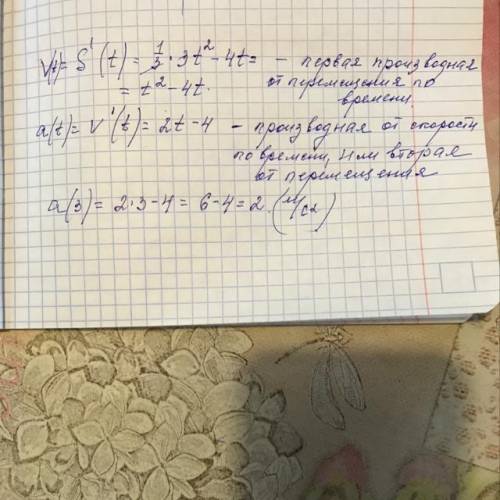 V(t)= S'(t) = 1/3 · 3t² - 4t = - первая производная
= t² - 4t. от перемещения по
времени.
a(t) = V'(t) = 2t - 4 - производная от скорости
по времени, или вторая
от перемещения
a(3) = 2·3-4 = 6-4 = 2. (м/с2)